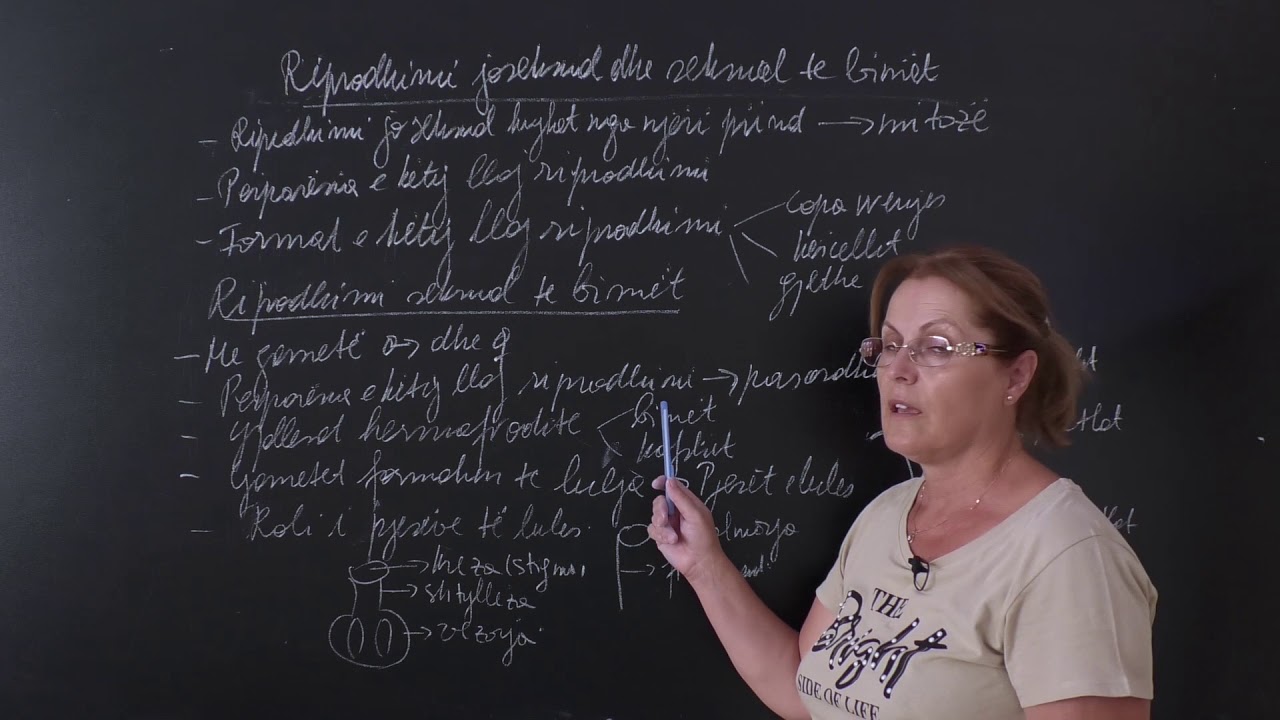 Riprodhimi joseksual dhe seksual te bimët
- Riprodhimi joseksual kryhet nga njëri prind → mitozë
- Perparësia e këtij lloj riprodhimi
- Format e këtij lloj riprodhimi
copa
kërcellet
gjethe
Riprodhimi seksual te bimët
- Me gametë ♂ dhe ♀
- Perparësia e këtij lloj riprodhimi →
- hermafrodite
bimët
kafshët
- Gametet formohen te lulja → Pjesët e lules
- Roli i pjesëve të lules
→ kreza (stigma
→ shtylleza
→ vezorja
THE
Bright
SIDE OF LIFE